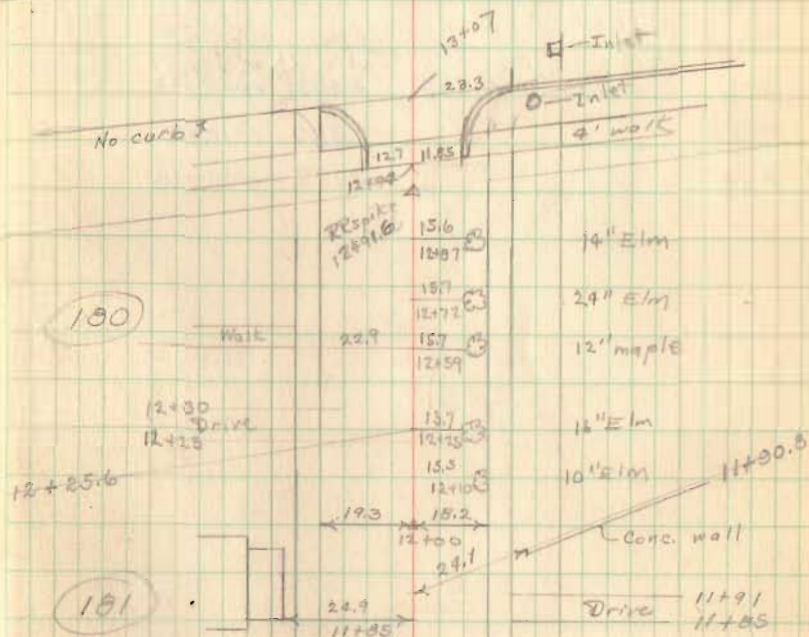 13+07
Inlet
23.3
Inlet
No curb
4' walk
12.7 11.85
12+94
RR spike
12+91.6
15.6
12+87
14" Elm
15.7
12+72
24" Elm
180
Walk
22.9
15.7
12+59
12" maple
12+30
Drive
12+23
15.7
12+25
12+25.6
15.5
12+10
10" Elm
11+90.8
19.3
15.2
12+00
24.1
Conc. wall
181
24.9
11+85
Drive
11+91
11+85